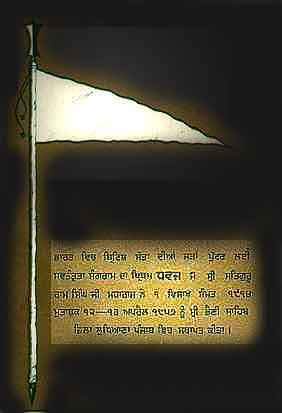 ਭਾਰਤ ਵਿਚ ਬ੍ਰਿਟਿਸ਼ ਸੱਤਾ ਦੀਆਂ ਜੜਾਂ ਪੁੱਟਣ ਲਈ
ਸਵਤੰਤ੍ਰਤਾ ਸੰਗਰਾਮ ਦਾ ਪ੍ਰਿਥਮ ਧਵਜ ਜੋ ਸ੍ਰੀ ਸਤਿਗੁਰੂ
ਰਾਮ ਸਿੰਘ ਜੀ ਮਹਾਰਾਜ ਨੇ ੧ ਵਿਸਾਖ ਸੰਮਤ ੧੯੧੪
ਮੁਤਾਬਕ ੧੨—੧੩ ਅਪਰੈਲ ੧੯੫੭ ਨੂੰ ਸ੍ਰੀ ਭੈਣੀ ਸਾਹਿਬ
ਜ਼ਿਲਾ ਲੁਧਿਆਣਾ ਪੰਜਾਬ ਵਿਚ ਸਥਾਪਤ ਕੀਤਾ ।